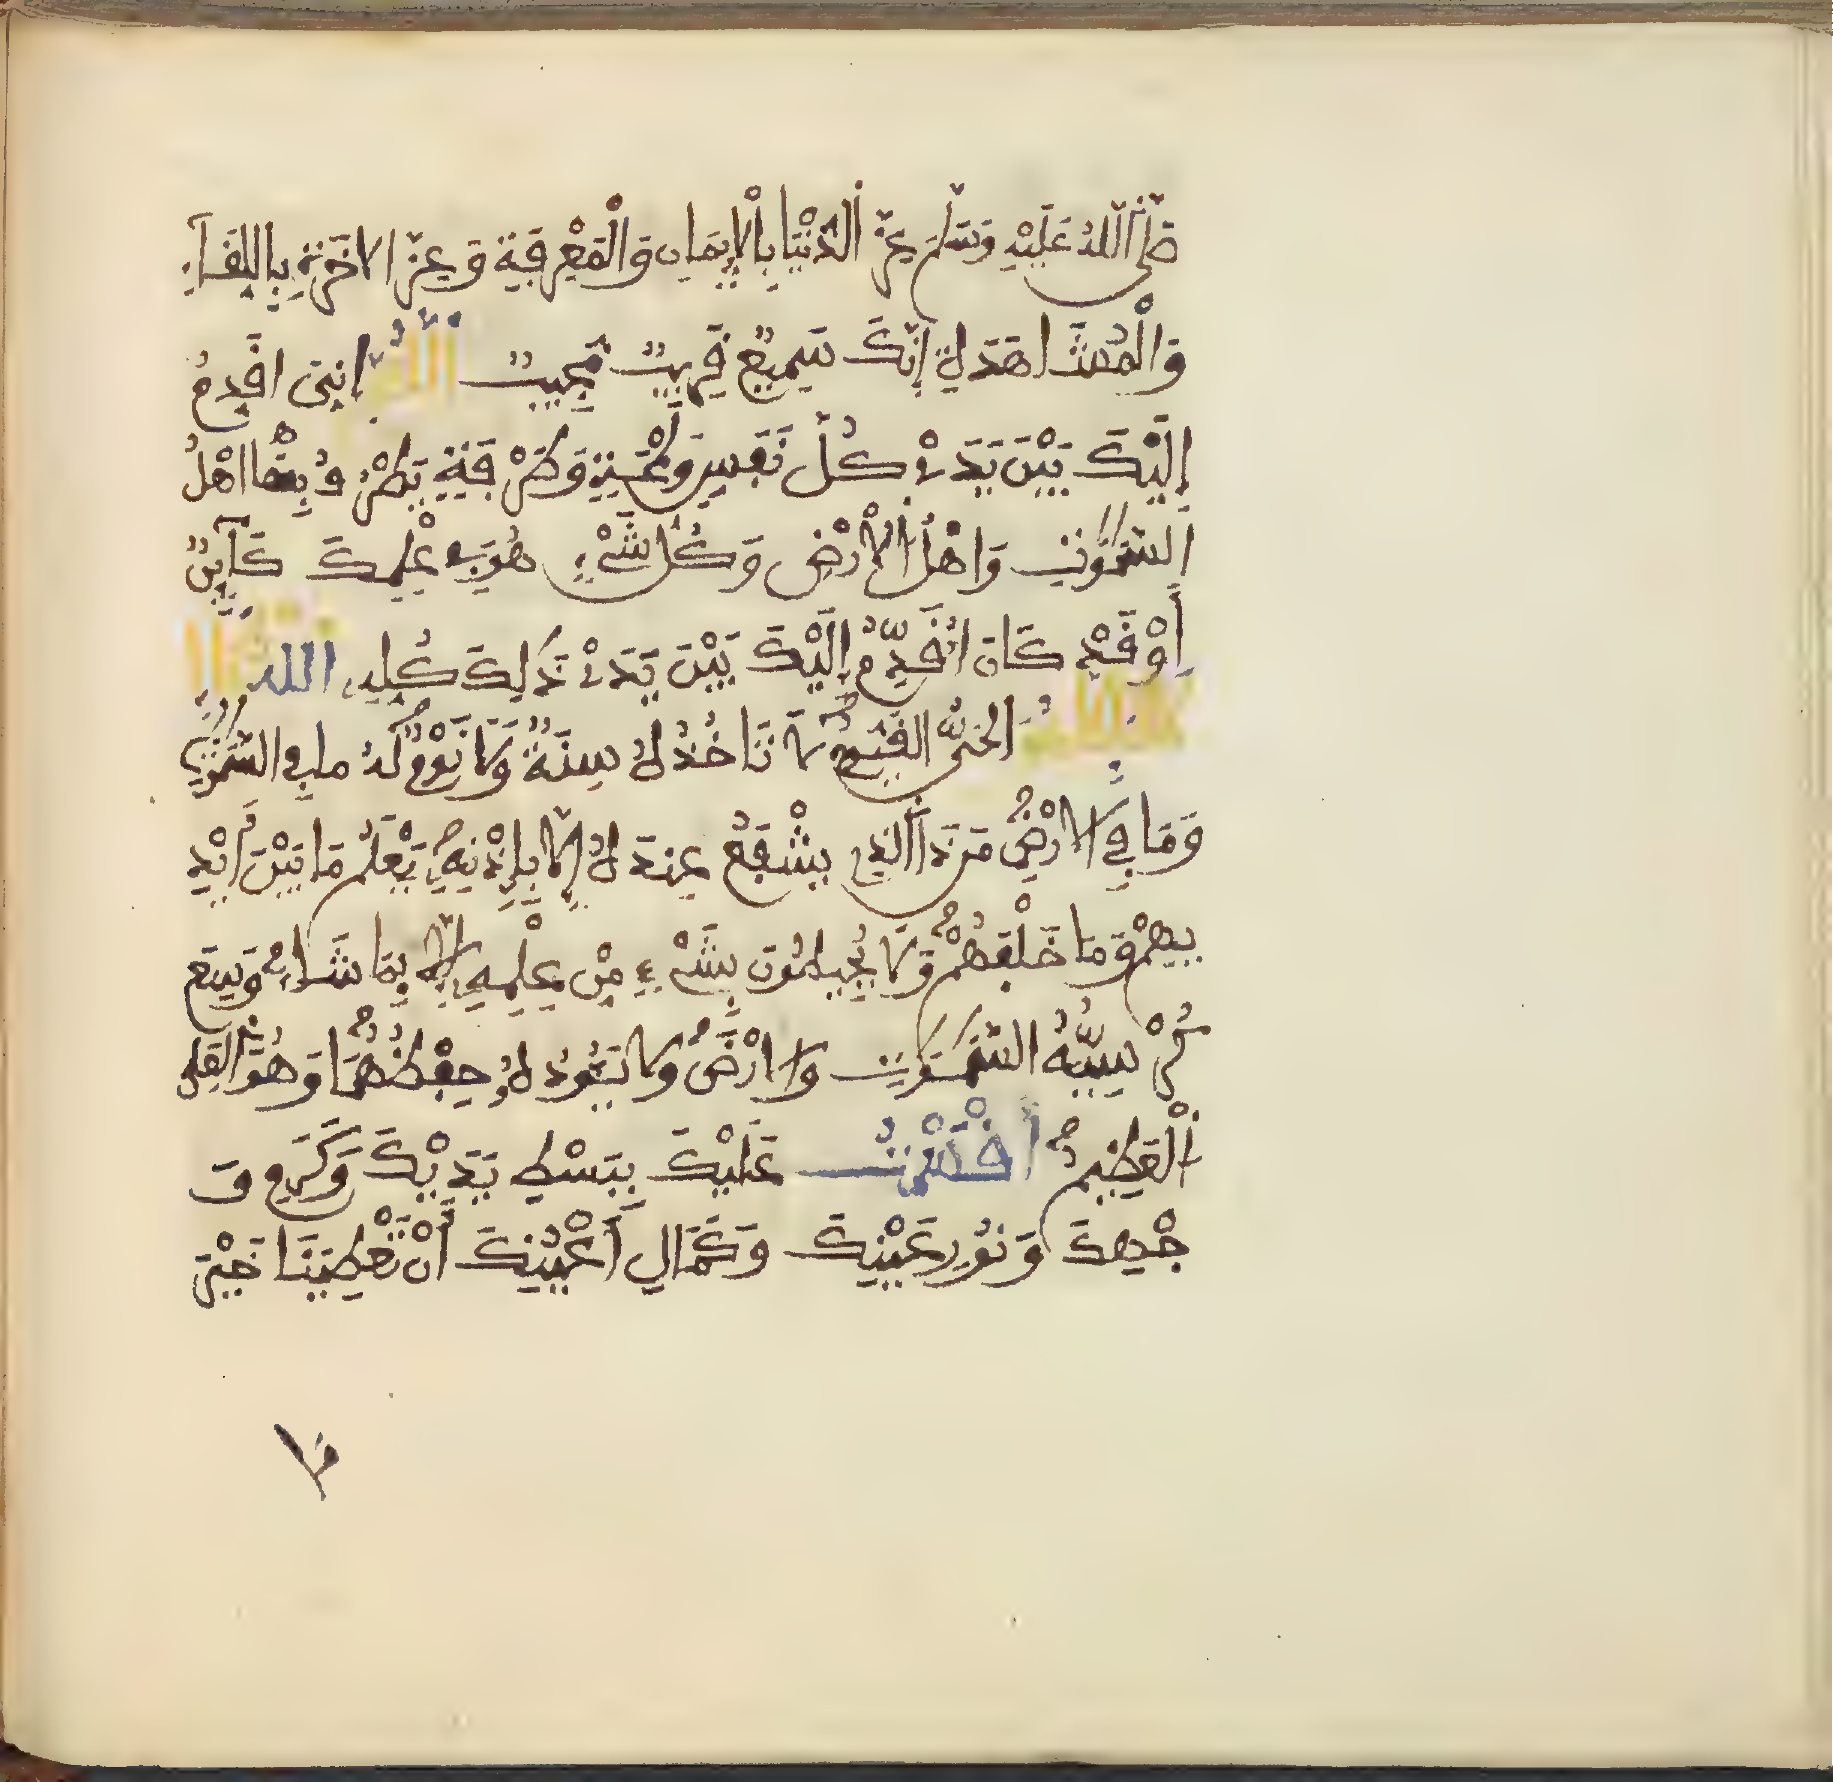 صَلَّى اللهُ عَلَيْهِ وَسَلَّمَ عِزَّ الدُّنْيَا بِالْإِيمَانِ وَالْمَعْرِفَةِ وَعِزَّ الْاخَرَةِ بِاللِّقَآءِ
وَالْمُشَاهَدَةِ إِنَّكَ سَمِيعٌ قَرِيبٌ مُّجِيبٌ اللَّهُمَّ إِنِّى اقَدِّمُ
إِلَيْكَ بَيْنَ يَدَىْ كُلِّ نَفَسٍ وَلَمْحَةٍ وَطَرْفَةٍ يَطْرِفُ بِهَا اهْلُ
السَّمَٰوَٰتِ وَاهْلُ الْأَرْضِ وَكُلُّ شَىْءٍ هُوَ فِى عِلْمِكَ كَآئِنٌ
أَوْ قَدْ كَانَ اُقَدِّمُ إِلَيْكَ بَيْنَ يَدَىْ ذَلِكَ كُلِّهِ اللهُ لَا
إِلَهَ إِلَّا هُوَ الْحَىُّ الْقَيُّومُ لَا تَاخُذُهُ سِنَةٌ وَلَا نَوْمٌ لَهُ مَا فِى السَّمَٰوَٰتِ
وَمَا فِى الْارْضِ مَن ذَا الَّذِى يَشْفَعُ عِندَهُ إِلَّا بِإِذْنِهِ يَعْلَمُ مَا بَيْنَ أَيْدِ
يهِمْ وَمَا خَلْفَهُمْ وَلَا يُحِيطُونَ بِشَىْءٍ مِّنْ عِلْمِهِ إِلَّا بِمَا شَاءَ وَسِعَ
كُرْسِيُّهُ السَّمَٰوَٰتِ وَالْارْضَ وَلَا يَئُودُهُ حِفْظُهُمَا وَهُوَ الْعَلِىُّ
الْعَظِيمُ أَقْسَمْتُ عَلَيْكَ بِبَسْطِ يَدَيْكَ وَكَرَمِ وَ
جْهِكَ وَنُورِ عَيْنِكَ وَكَمَالِ أَعْيُنِكَ أَنْ تُعْطِيَنَا خَيْرَ
مَا